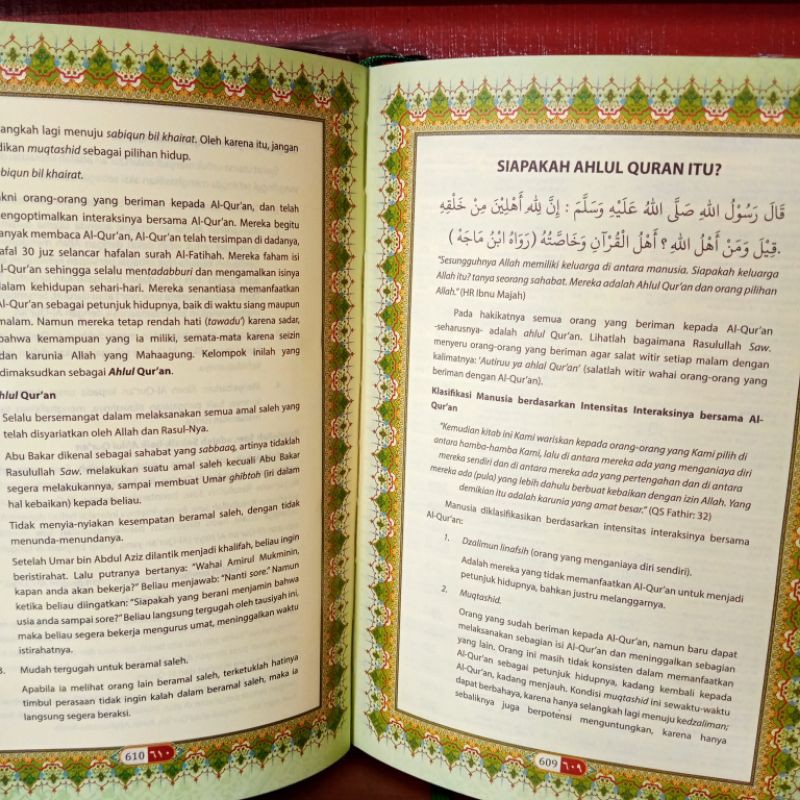 SIAPAKAH AHLUL QURAN ITU?
قَالَ رَسُوْلُ اللهِ صَلَّى اللهُ عَلَيْهِ وَسَلَّمَ : إِنَّ لِلهِ أَهْلِيْنَ مِنْ خَلْقِهِ
قِيْلَ وَمَنْ أَهْلُ اللهِ ؟ أَهْلُ الْقُرْآنِ وَخَاصَّتُهُ ( رَوَاهُ ابْنُ مَاجَهْ ).
"Sesungguhnya Allah memiliki keluarga di antara manusia. Siapakah keluarga
Allah itu? tanya seorang sahabat. Mereka adalah Ahlul Qur'an dan orang pilihan
Allah." (HR Ibnu Majah)
Pada hakikatnya semua orang yang beriman kepada Al-Qur'an
-seharusnya- adalah ahlul Qur'an. Lihatlah bagaimana Rasulullah Saw.
menyeru orang-orang yang beriman agar salat witir setiap malam dengan
kalimatnya: 'Autiruu ya ahlal Qur'an' (salatlah witir wahai orang-orang yang
beriman dengan Al-Qur'an).
Klasifikasi Manusia berdasarkan Intensitas Interaksinya bersama Al-
Qur'an
"Kemudian kitab ini Kami wariskan kepada orang-orang yang Kami pilih di
antara hamba-hamba Kami, lalu di antara mereka ada yang menganiaya diri
mereka sendiri dan di antara mereka ada yang pertengahan dan di antara
mereka ada (pula) yang lebih dahulu berbuat kebaikan dengan izin Allah. Yang
demikian itu adalah karunia yang amat besar." (QS Fathir: 32)
Manusia diklasifikasikan berdasarkan intensitas interaksinya bersama
Al-Qur'an:
1. Dzalimun linafsih (orang yang menganiaya diri sendiri).
Adalah mereka yang tidak memanfaatkan Al-Qur'an untuk menjadi
petunjuk hidupnya, bahkan justru melanggarnya.
2. Muqtashid.
Orang yang sudah beriman kepada Al-Qur'an, namun baru dapat
melaksanakan sebagian isi Al-Qur'an dan meninggalkan sebagian
yang lain. Orang ini masih tidak konsisten dalam memanfaatkan
Al-Qur'an sebagai petunjuk hidupnya, kadang kembali kepada
Al-Qur'an, kadang menjauh. Kondisi muqtashid ini sewaktu-waktu
dapat berbahaya, karena hanya selangkah lagi menuju kedzaliman;
sebaliknya juga berpotensi menguntungkan, karena hanya
609 ٦٠٩
angkah lagi menuju sabiqun bil khairat. Oleh karena itu, jangan
dikan muqtashid sebagai pilihan hidup.
abiqun bil khairat.
akni orang-orang yang beriman kepada Al-Qur'an, dan telah
engoptimalkan interaksinya bersama Al-Qur'an. Mereka begitu
anyak membaca Al-Qur'an, Al-Qur'an telah tersimpan di dadanya,
afal 30 juz selancar hafalan surah Al-Fatihah. Mereka faham isi
l-Qur'an sehingga selalu mentadabburi dan mengamalkan isinya
alam kehidupan sehari-hari. Mereka senantiasa memanfaatkan
Al-Qur'an sebagai petunjuk hidupnya, baik di waktu siang maupun
malam. Namun mereka tetap rendah hati (tawadu') karena sadar,
bahwa kemampuan yang ia miliki, semata-mata karena seizin
dan karunia Allah yang Mahaagung. Kelompok inilah yang
dimaksudkan sebagai Ahlul Qur'an.
hlul Qur'an
Selalu bersemangat dalam melaksanakan semua amal saleh yang
telah disyariatkan oleh Allah dan Rasul-Nya.
Abu Bakar dikenal sebagai sahabat yang sabbaaq, artinya tidaklah
Rasulullah Saw. melakukan suatu amal saleh kecuali Abu Bakar
segera melakukannya, sampai membuat Umar ghibtoh (iri dalam
hal kebaikan) kepada beliau.
Tidak menyia-nyiakan kesempatan beramal saleh, dengan tidak
menunda-menundanya.
Setelah Umar bin Abdul Aziz dilantik menjadi khalifah, beliau ingin
beristirahat. Lalu putranya bertanya: "Wahai Amirul Mukminin,
kapan anda akan bekerja?" Beliau menjawab: "Nanti sore." Namun
ketika beliau diingatkan: "Siapakah yang berani menjamin bahwa
usia anda sampai sore?" Beliau langsung tergugah oleh tausiyah ini,
maka beliau segera bekerja mengurus umat, meninggalkan waktu
istirahatnya.
3. Mudah tergugah untuk beramal saleh.
Apabila ia melihat orang lain beramal saleh, terketuklah hatinya
timbul perasaan tidak ingin kalah dalam beramal saleh, maka ia
langsung segera beraksi.
610 ٦١٠